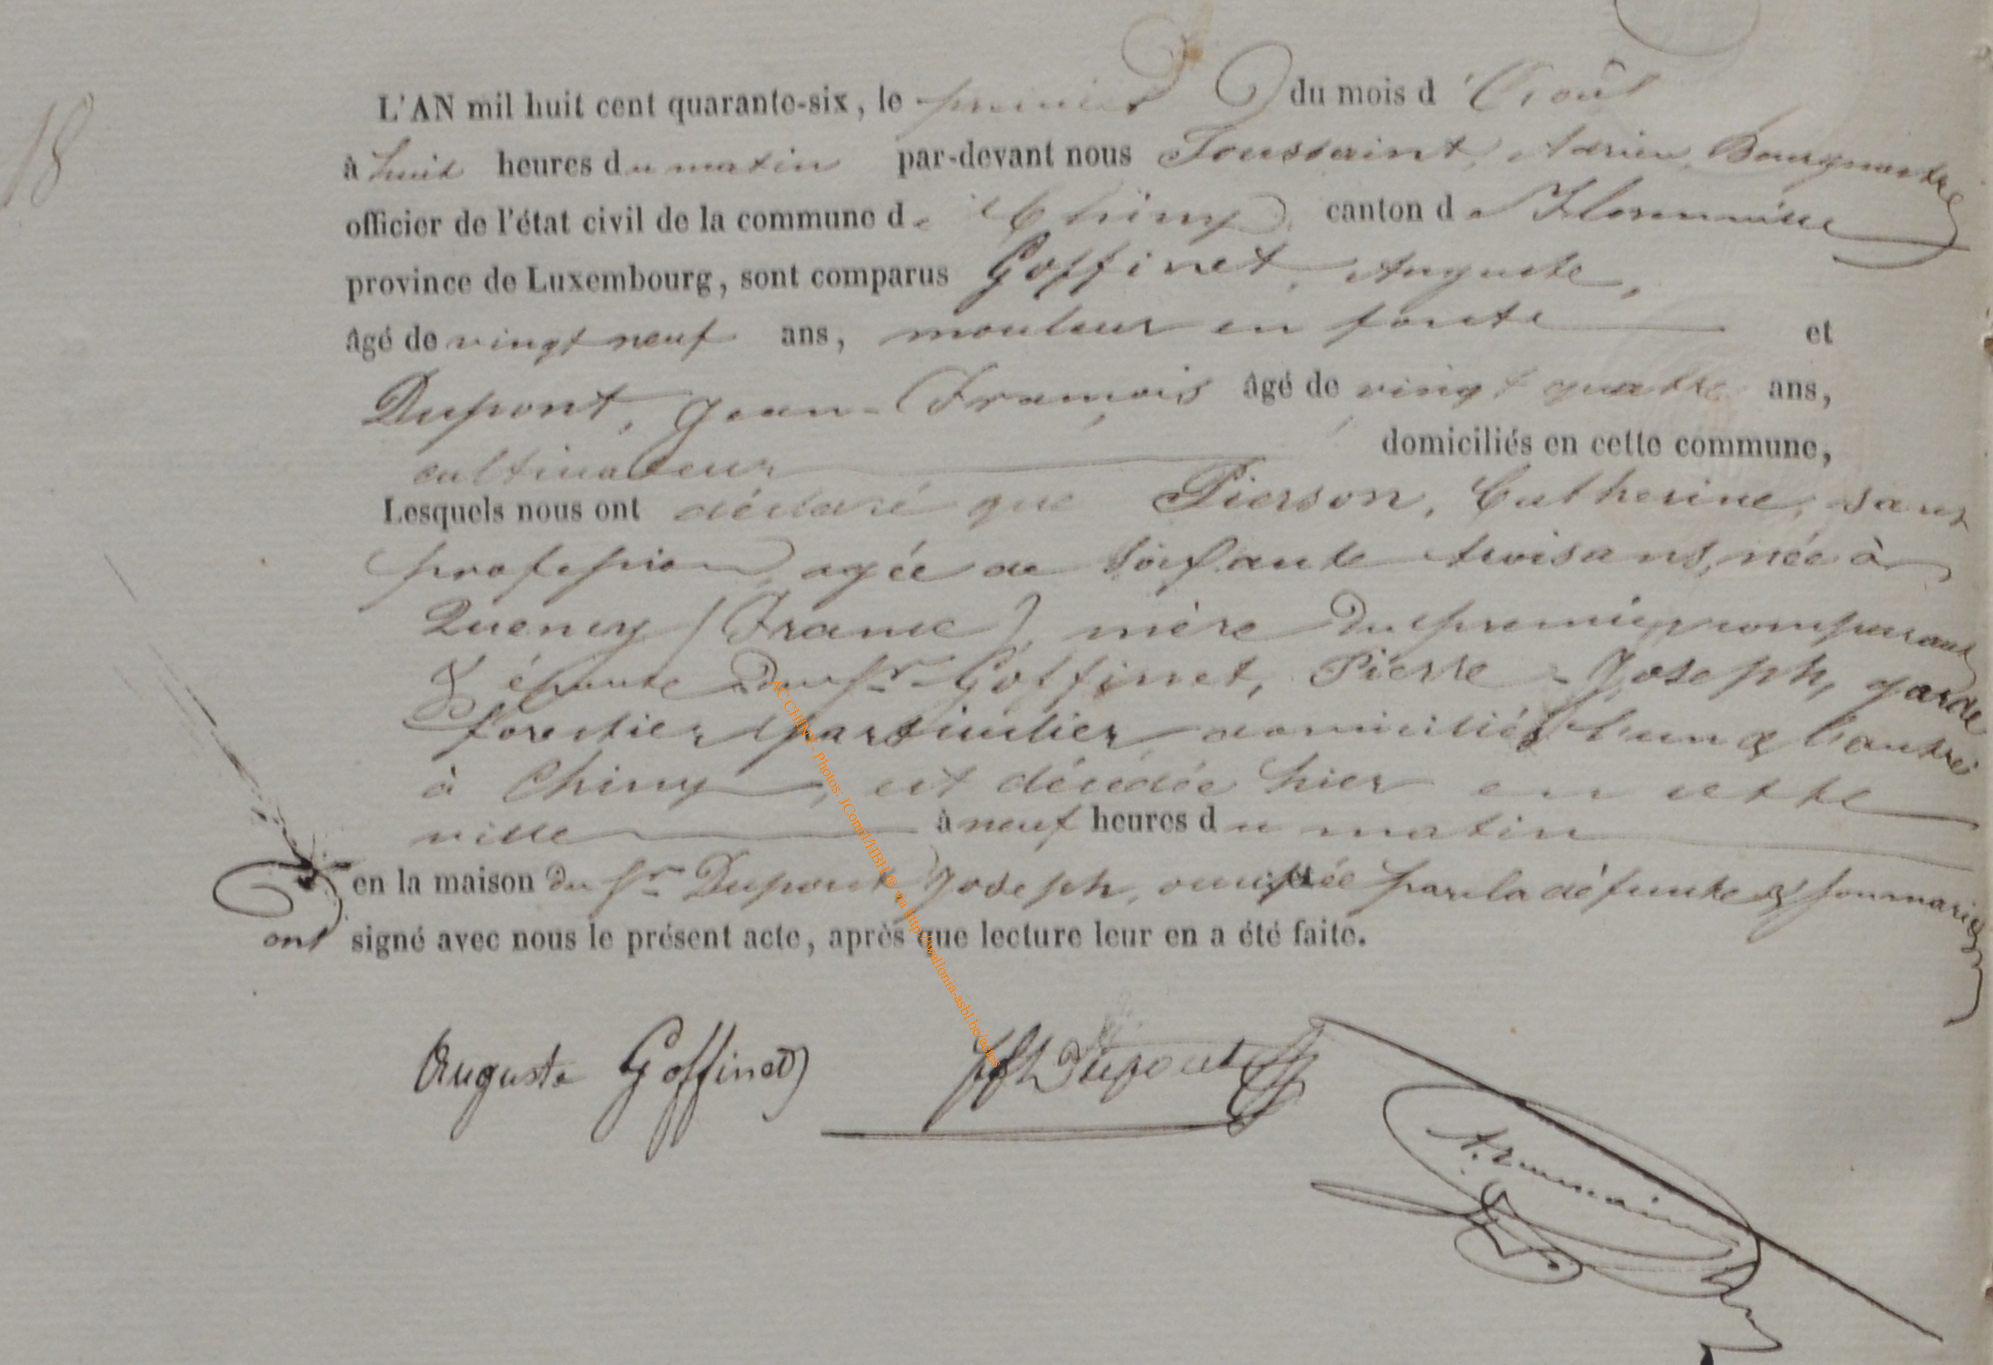 18
L'AN mil huit cent quarante-six, le premier du mois d'Août
à huit heures du matin par-devant nous Toussaint, Adrien, Bourgmestre
officier de l'état civil de la commune de Chiny, canton de Florenville
province de Luxembourg, sont comparus Goffinet, Auguste,
âgé de vingt neuf ans, mouleur en fonte et
Dupont, Jean-François âgé de vingt quatre ans,
cultivateur domiciliés en cette commune,
Lesquels nous ont déclaré que Pierson, Catherine, sans
profession, agée de soixante trois ans, née à
(France), mère du premier comparant
& épouse du Sr Goffinet, Pierre-Joseph, garde
forestier particulier domiciliés l'un & l'autre
à Chiny, est décédée hier en cette
ville à neuf heures du matin
en la maison du Sr Dupont Joseph, occupée par la défunte & son mari &
ont signé avec nous le présent acte, après que lecture leur en a été faite.
Auguste Goffinet Dupont
AC CHINY - Photos